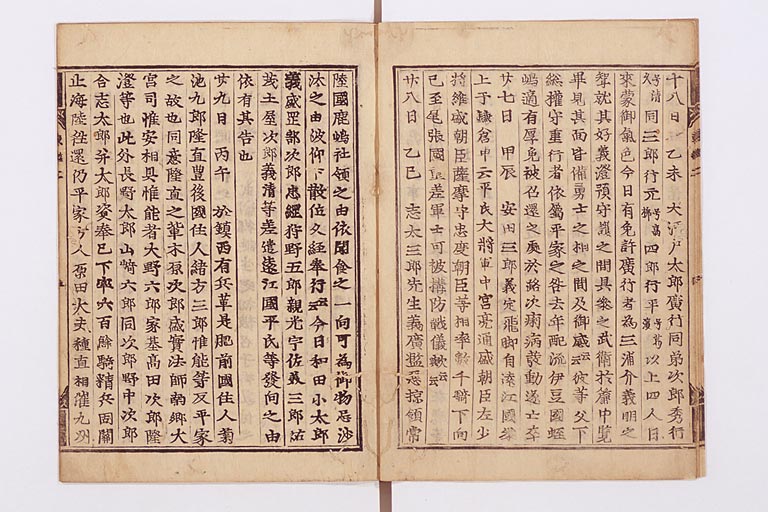 十八日 乙未 大河戸太郎廣行同弟次郎秀行
号清久 同三郎行元 号高柳 四郎行平 号葛濱 以上四人日
來蒙御氣色今日有免許廣行者為三浦介義明之
聟就其好義澄預守護之間具參之武衛於簾中覽
畢見其面皆備勇士之相之間及御感云云彼等父下
総權守重行者依屬平家之咎去年配流伊豆國蛭
嶋適有厚免被召還之處於路次痢病發動遂亡卒
廿七日 甲辰 安田三郎義定飛脚自遠江國參
上于鎌倉申云平氏大將軍中宮亮通盛朝臣左少
將維盛朝臣薩摩守忠度朝臣等相率數千騎下向
已至尾張國重差軍士可被構防戰儀歟云云
廿八日 乙巳 志太三郎先生義廣濫惡掠領常
陸國鹿嶋社領之由依聞食之一向可為御物忌沙
汰之由被仰下散位久經奉行云云今日和田小太郎
義盛岡部次郎忠綱狩野五郎親光宇佐美三郎祐
茂土屋次郎義清等差遣遠江國平氏等發向之由
依有其告也
廿九日 丙午 於鎮西有兵革是肥前國住人菊
池九郎隆直豊後國住人緒方三郎惟能等反平家
之故也同意隆直之輩木原次郎盛實法師南郷大
宮司惟安相具惟能者大野六郎家基高田次郎隆
澄等也此外長野太郎山﨑六郎同次郎野中次郎
合志太郎并太郎資奉已下率六百餘騎精兵固關
止海陸往還仍平家方人原田大夫種直相催九州